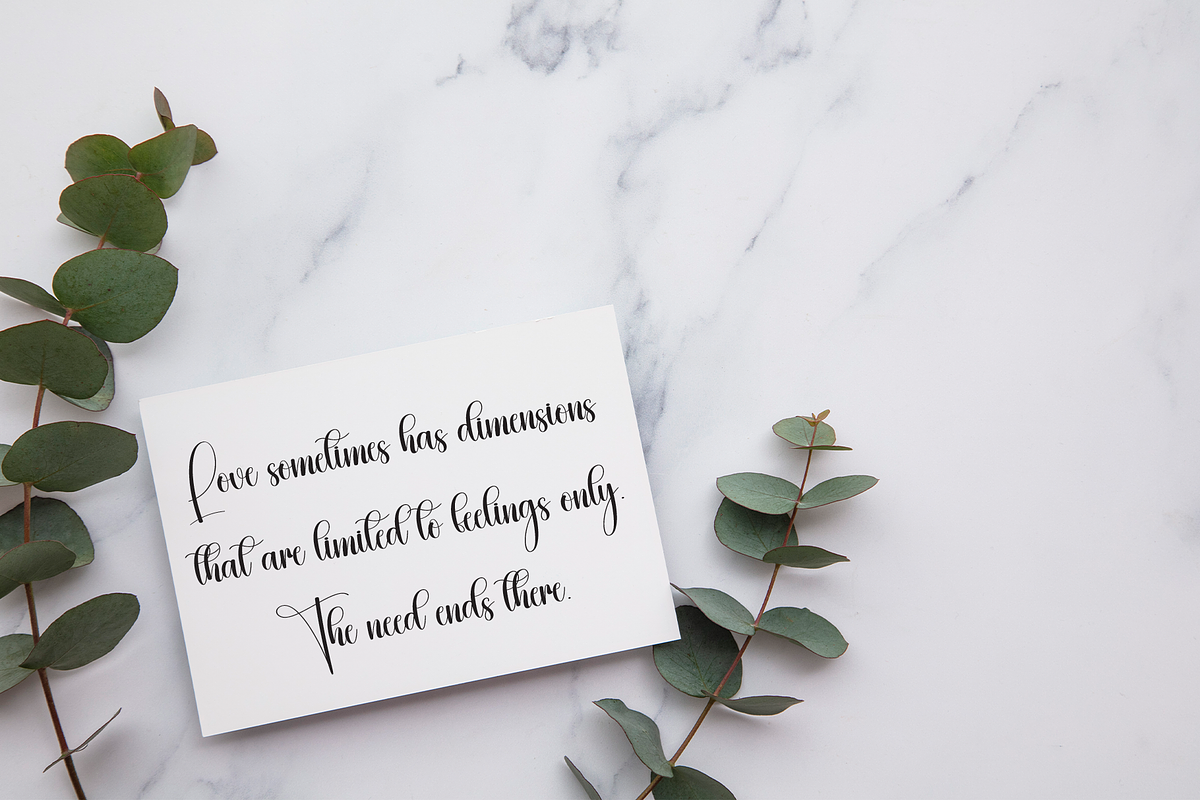 Love sometimes has dimensions
that are limited to feelings only.
The need ends there.